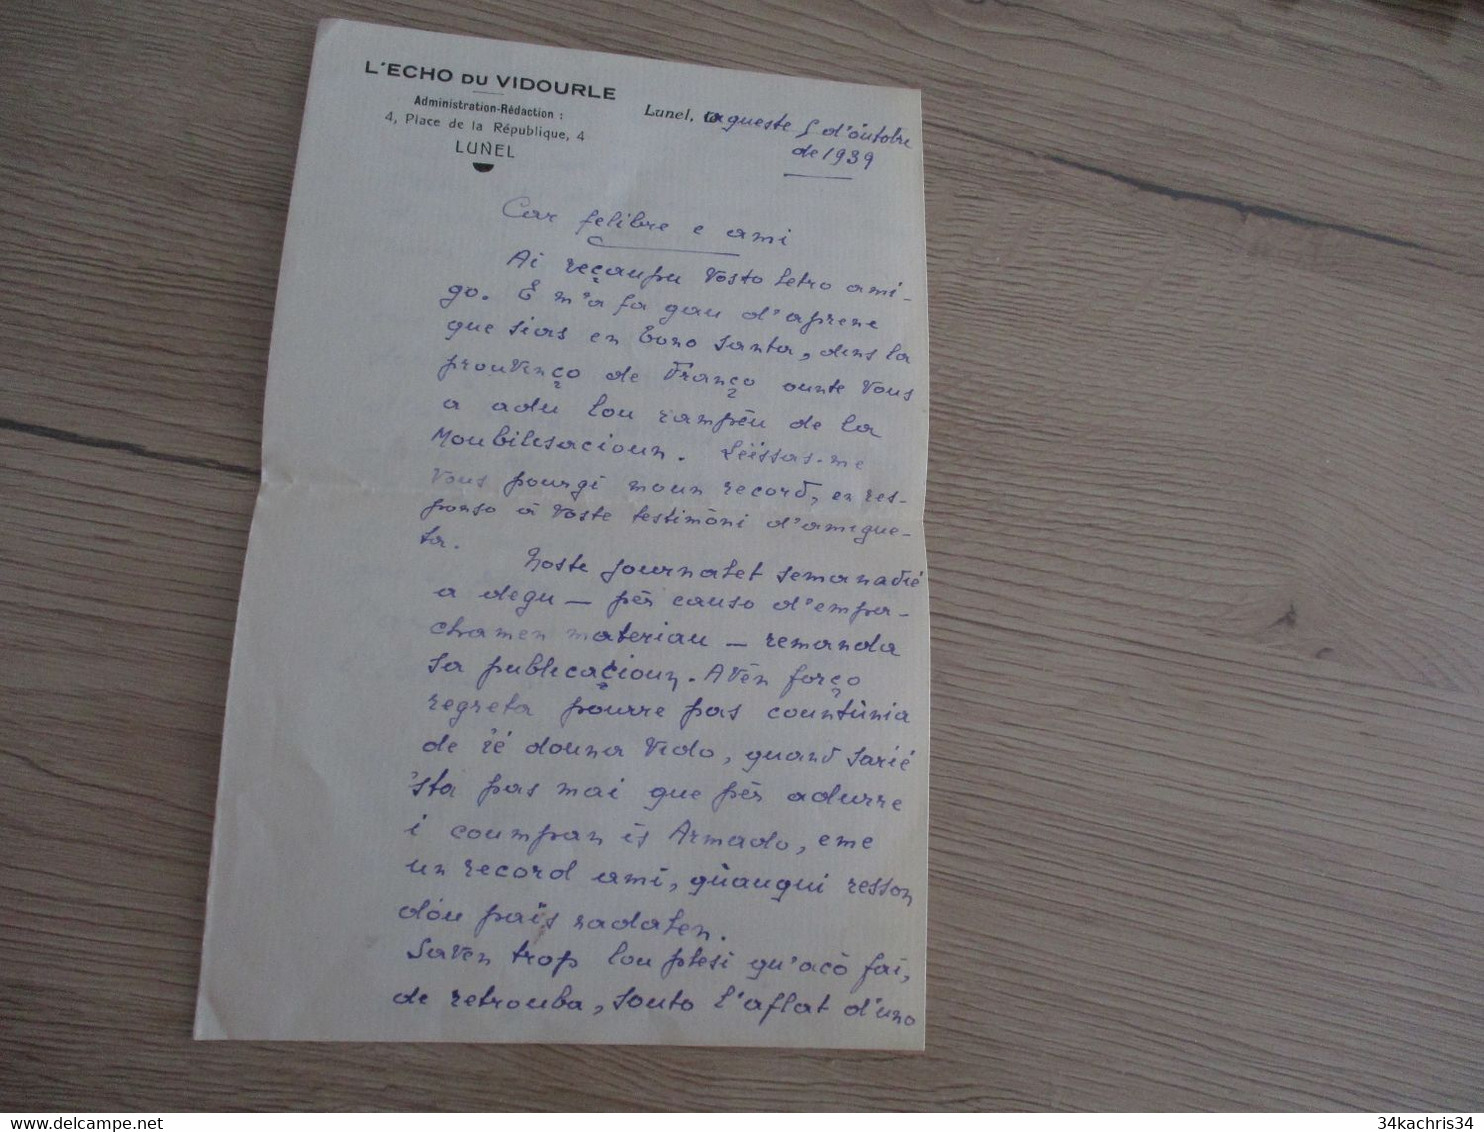 L'ECHO DU VIDOURLE
Administration-Rédaction :
4, Place de la République, 4
LUNEL
Lunel, aqueste 5 d'óutobre
de 1939
Car felibre e ami
Ai reçaupu vosto letro ami-
go. E m'a fa gau d'aprene
que sias en bono santa, dins la
prouvinço de Franço ounte vous
a adu lou rampèu de la
Moubilisacioun. Leissas-me
vous pourgi moun record, en res-
ponso à voste testimòni d'amigue-
ta.
Noste journalet semanadié
a degu — pèr causo d'empa-
chamen materiau — remanda
sa publicacioun. Avèn forço
regreta pourre pas countùnia
de ié douna vido, quand sarié
'sta pas mai que pèr adurre
i coumpan is Armado, eme
un record ami, quauqui resson
dóu païs nadalen.
Saven trop lou plesi qu'acò fai,
de retrouba, souto l'aflat d'uno
34kachris34